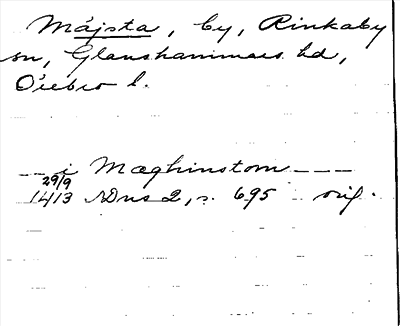 Måjsta, by, Rinkaby
sn, Glanshammars hd,
Örebro l.
--- i Mæghinstom ---
29/9
1413 SDns 2, s. 695 orig.